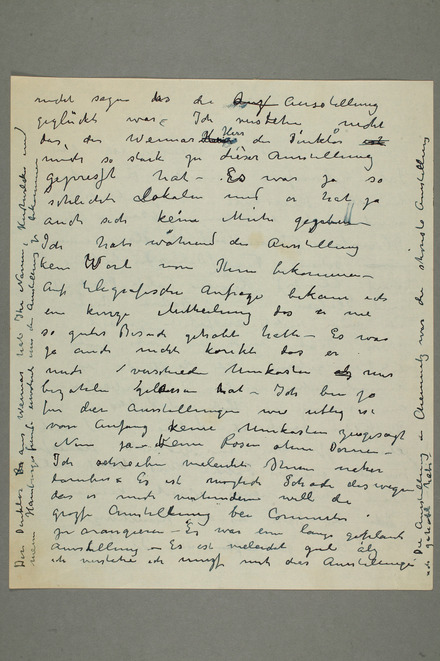 nicht sagen das die Ausstellung
geglückt war. Ich verstehe nicht
das, der Weimar Herr der Direktor
mich so stark zu dieser Ausstellung
gepresst hat – Es war ja so
schlechte Lokalen und er hat ja
auch sich keine Mühe gegeben
Ich habe während der Ausstellung
kein Wort von Ihm bekommen –
Auf telegrafische Anfrage bekam ich
ein kurze Mittheilung das er nie
so guten Besuch gehabt hatte – Es war
ja auch nicht korrekt das er
mich verschieden Unkosten
bezahlen hat – Ich bin ja
für die Ausstellungen wie
vom Anfang keine Unkosten zugesagt
Nun ja – kein Rosen ohne Dornen –
Ich schreiben vieleicht Ihnen näher
darüber. Es ist möglich
das er mich will die
große Ausstellung bei
zu arangieren – Es war eine lange geplante
Ausstellung – Es ist vieleicht gut
ich verstehe ich muss mit die Ausstellungen
Der Direktor aus Weimar hat Ihr Namen, und
mein Hamburger die Austellung zu bekommen
Die Ausstellung in Chemnitz war die schönste Ausstellung
ich gehabt habe